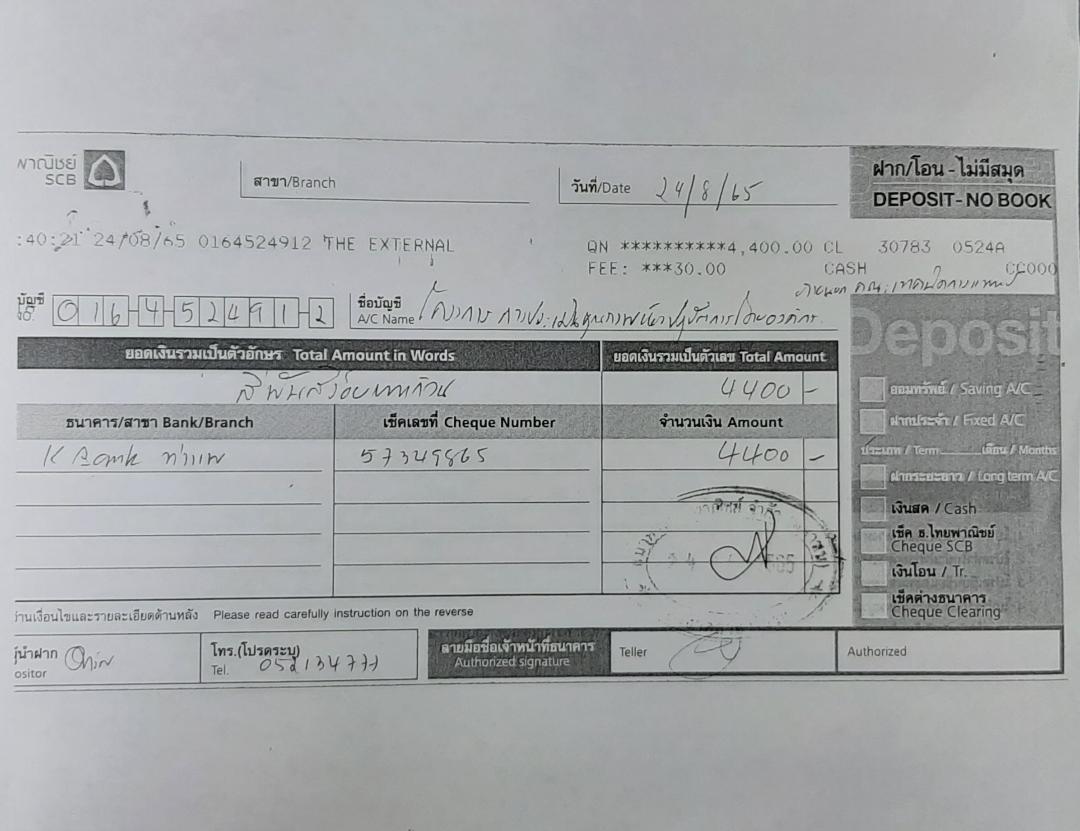 พาณิชย์
SCB
สาขา/Branch
วันที่/Date 24/8/65
ฝาก/โอน - ไม่มีสมุด
DEPOSIT-NO BOOK
:40:21 24/08/65 0164524912 THE EXTERNAL
QN **********4,400.00 CL 30783 0524A
FEE: ***30.00 CASH CC000
บัญชี 016-4-52491-2
ชื่อบัญชี
A/C Name โครงการ การประเมินคุณภาพ โดยองค์กร
ภายนอก คณะเทคนิคการแพทย์
Deposit
ยอดเงินรวมเป็นตัวอักษร Total Amount in Words ยอดเงินรวมเป็นตัวเลข Total Amount
สี่พันสี่ร้อยบาทถ้วน 4400 -
ธนาคาร/สาขา Bank/Branch เช็คเลขที่ Cheque Number จำนวนเงิน Amount
K Bank ท่าแพ 57349865 4400 -
ออมทรัพย์ / Saving A/C
ฝากประจำ / Fixed A/C
ประเภท / Term เดือน / Months
ฝากระยะยาว / Long term A/C
เงินสด / Cash
เช็ค ธ.ไทยพาณิชย์
Cheque SCB
เงินโอน / Tr.
เช็คต่างธนาคาร
Cheque Clearing
่านเงื่อนไขและรายละเอียดด้านหลัง Please read carefully instruction on the reverse
ผู้นำฝาก
ositor
โทร.(โปรดระบุ)
Tel.
ลายมือชื่อเจ้าหน้าที่ธนาคาร
Authorized signature
Teller
Authorized